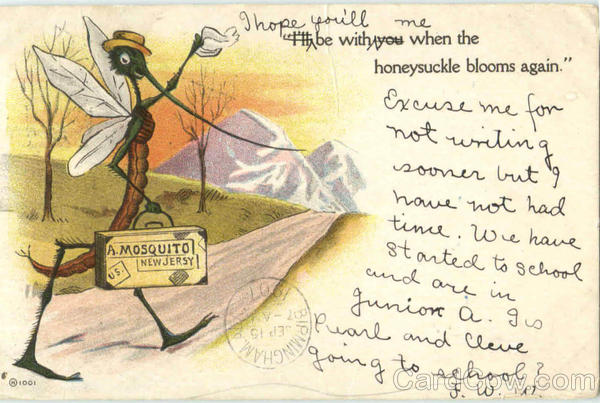 I hope you'll me
"I'll be with you when the
honeysuckle blooms again."
Excuse me for
not writing
sooner but I
have not had
time. We have
started to school
and are in
Junior A. Is
Pearl and Cleve
going to school?
A. MOSQUITO
NEW JERSY
U.S.
BIRMINGHAM
SEP 15
1001
CardCow.com